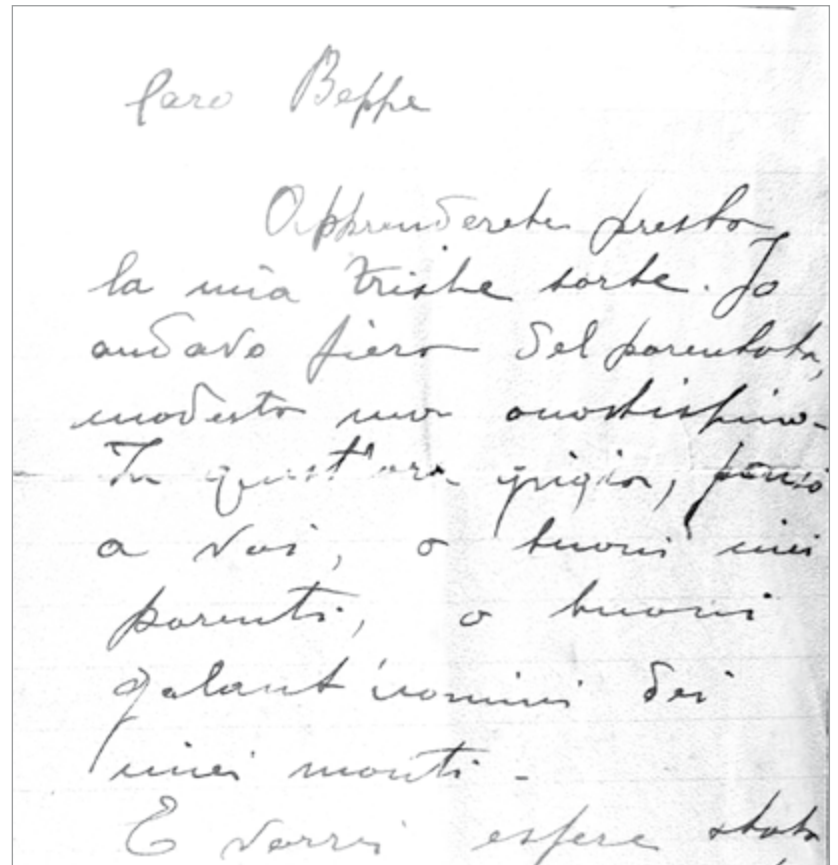 Caro Beppe
Apprenderete presto
la mia triste sorte. Io
andavo fiero del parentato,
modesto ma onestissimo.
In quest'ora grigia, penso
a voi, o buoni miei
parenti, o buoni
galant'uomini dei
miei monti.
E vorrei essere stato